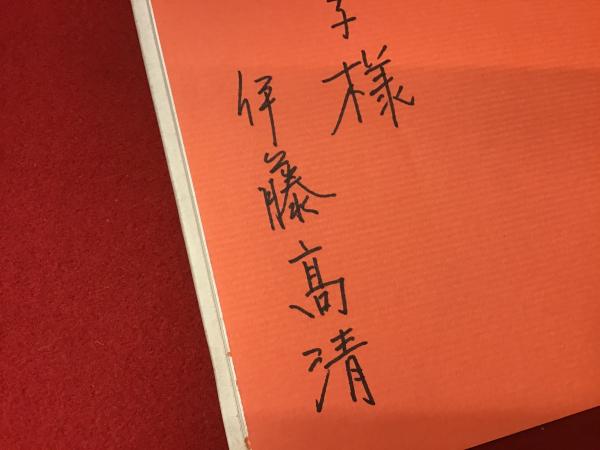 子様
伊藤高清